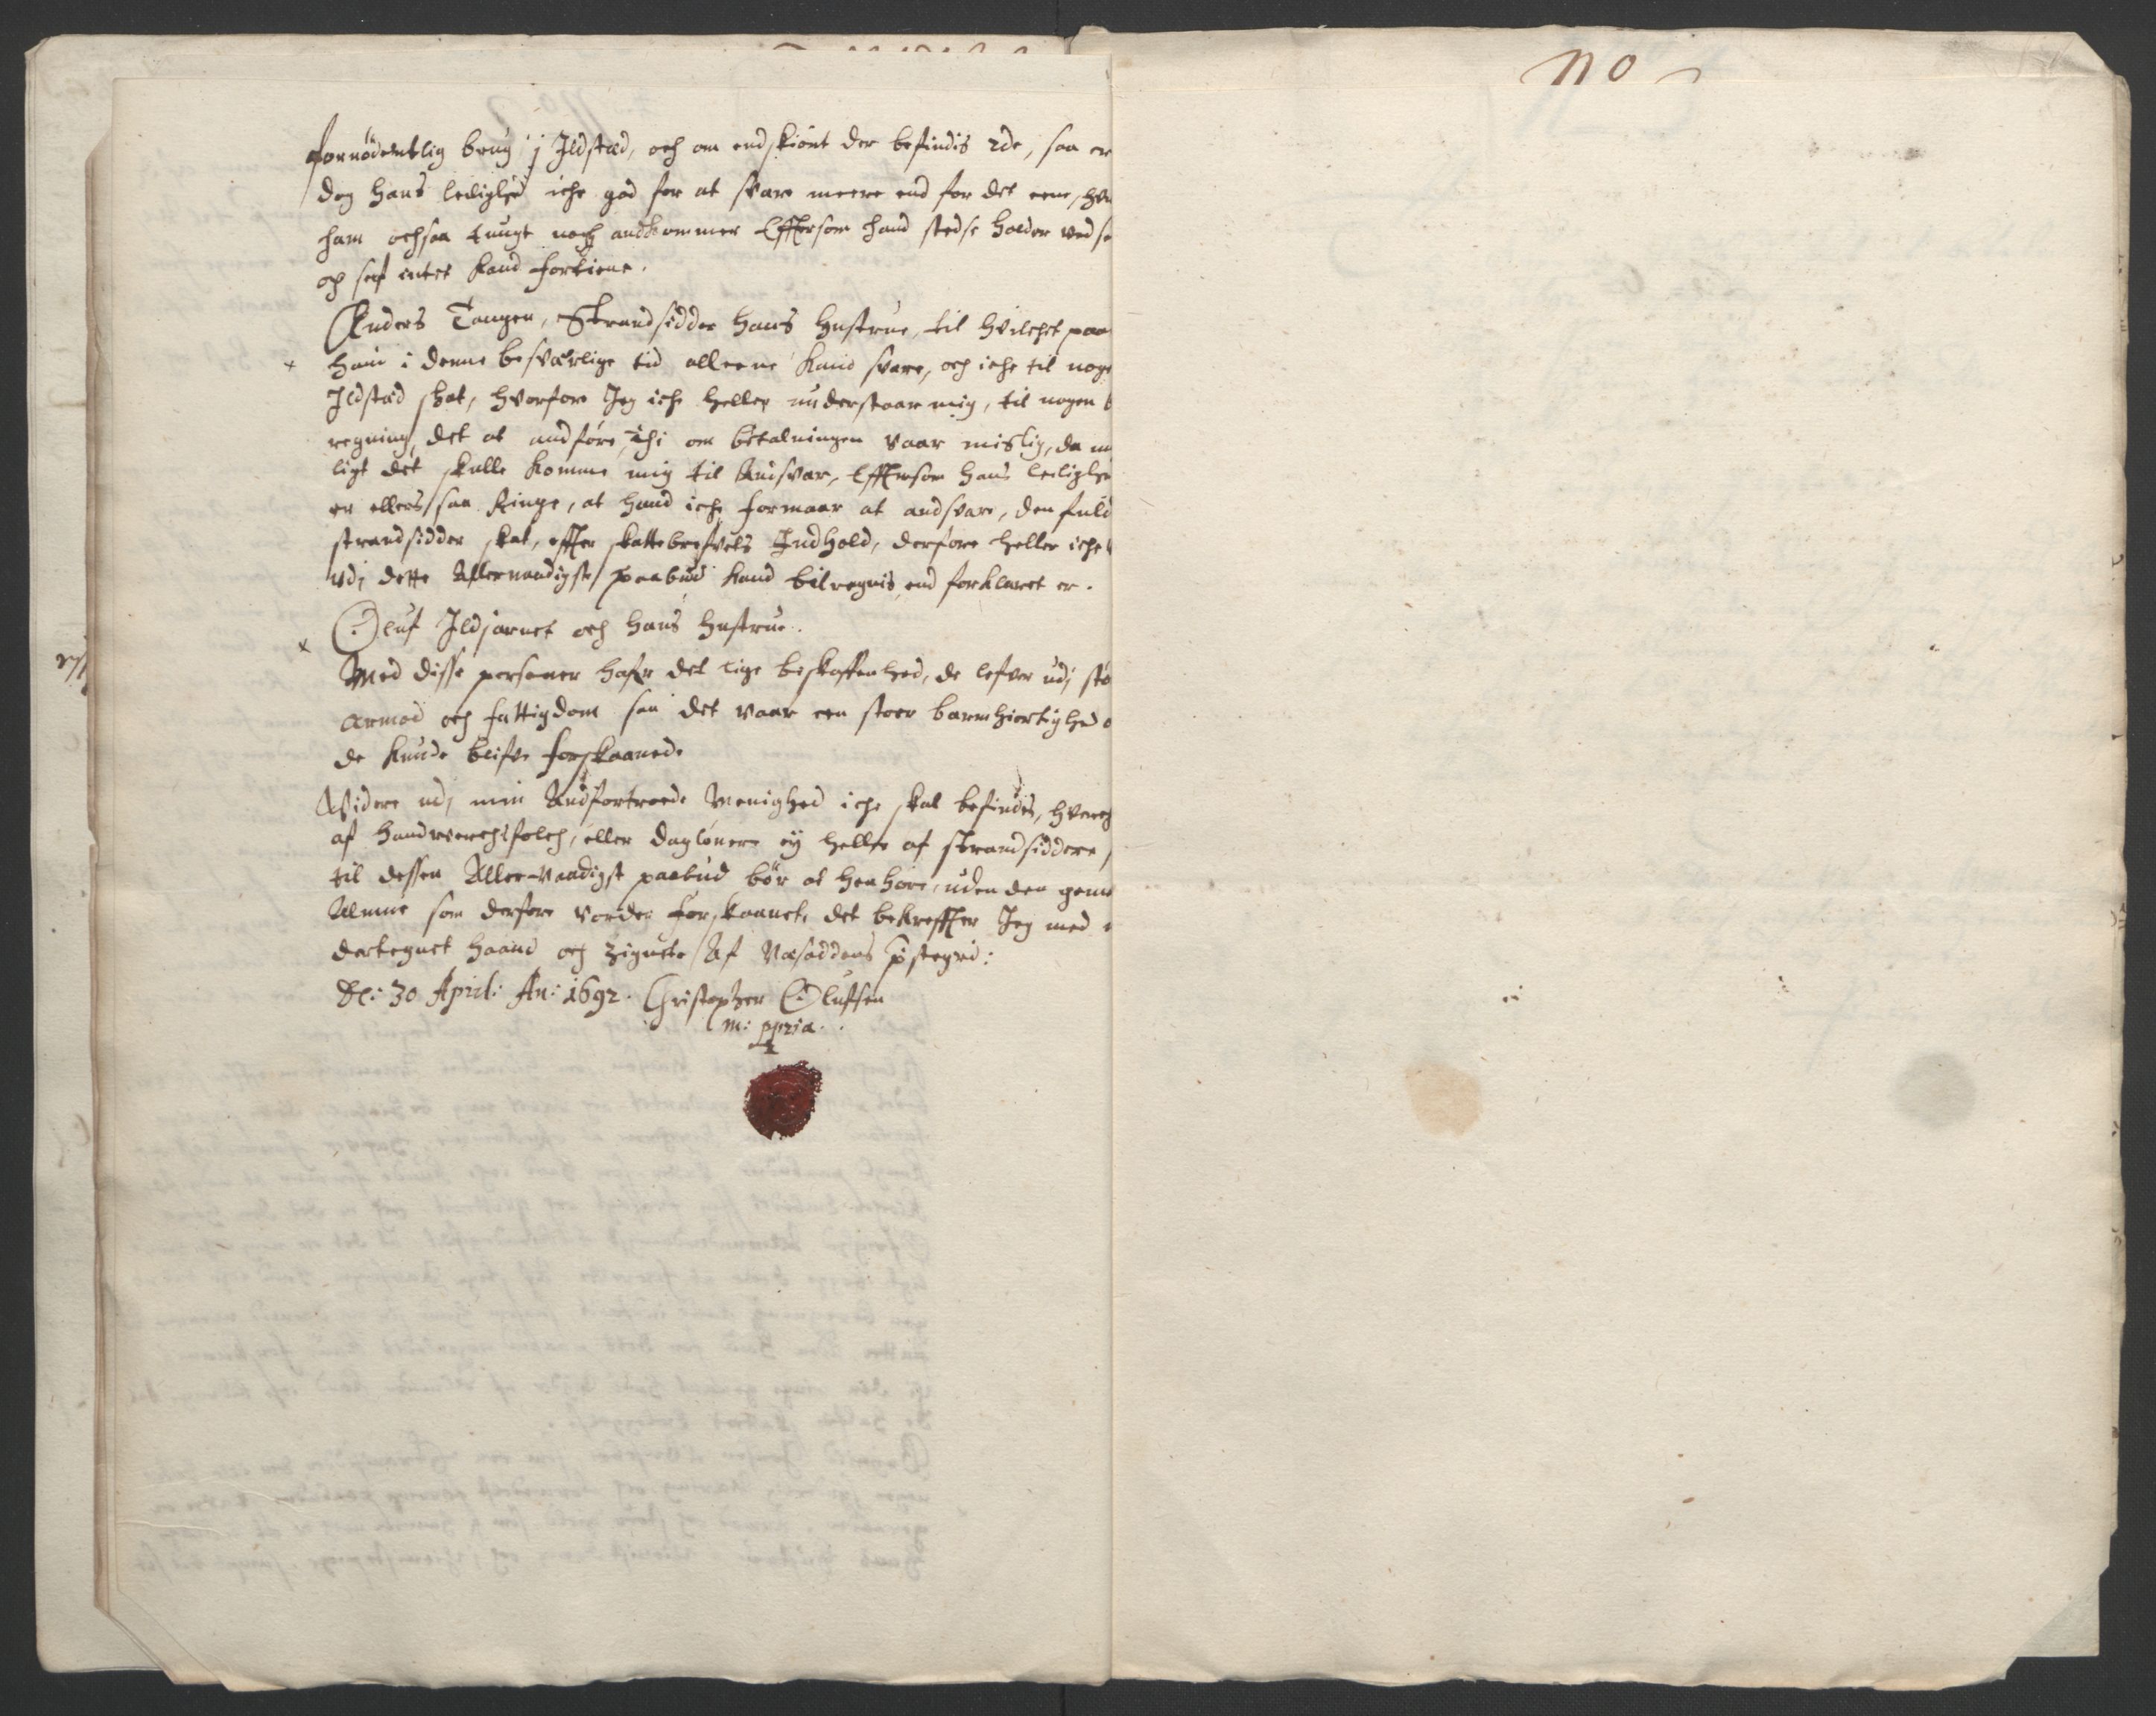 No
fornødentlig brug j Ildsted, och om endskiönt der befindis 2de, saa er
dog hans leilighed iche god for at svare meere end for det eene, hvil
ham ochsaa tungt noch andkommer Effterson hand stedse holder ved se
og self intet kand fortiene.
Anders Tangen, Strandsidder hans hustrue, til hvilchet paa
× hand i denne besværlige tid alleene kand svare, och iche til noge
Ildsted skat, hvorfore Jeg iche heller understaar mig, til nogen b
regning det at andføre, thi om betalningen vaar mislig, da m
ligt det skulle komme mig til Andsvar, Effterson hans leilighe
er ellers saa Ringe, at hand iche formaar at andsvare, den fuld
strandsidder skat, effter skattebrefvets Indhold, derfore heller iche
udj dette Allernaadigste paabud kand bilregnis, end forklaret er.
× Oluf Ildjernet och hans hustrue.
Med disse personer hafr det lige beskaffenhed, de lefver udj stö
armod och fattigdom saa det vaar een stoer barmhiertighed o
de kunde blifve forskaanede
Widere udj min Andfortroede Menighed iche skal befindes, hverch
af handwerchsfolch, eller daglönere ey heller af strandsiddere,
til dessen Allernaadigst paabud bör at henhöre, uden den geme
Almue som derfore vorder forskaanet, det bekreffter Jeg med
dertegnet haand och Zignete Af Næsoddens pstegrd:
Dl: 30 April: An: 1692. Christopher Olufsen
m: ppria.